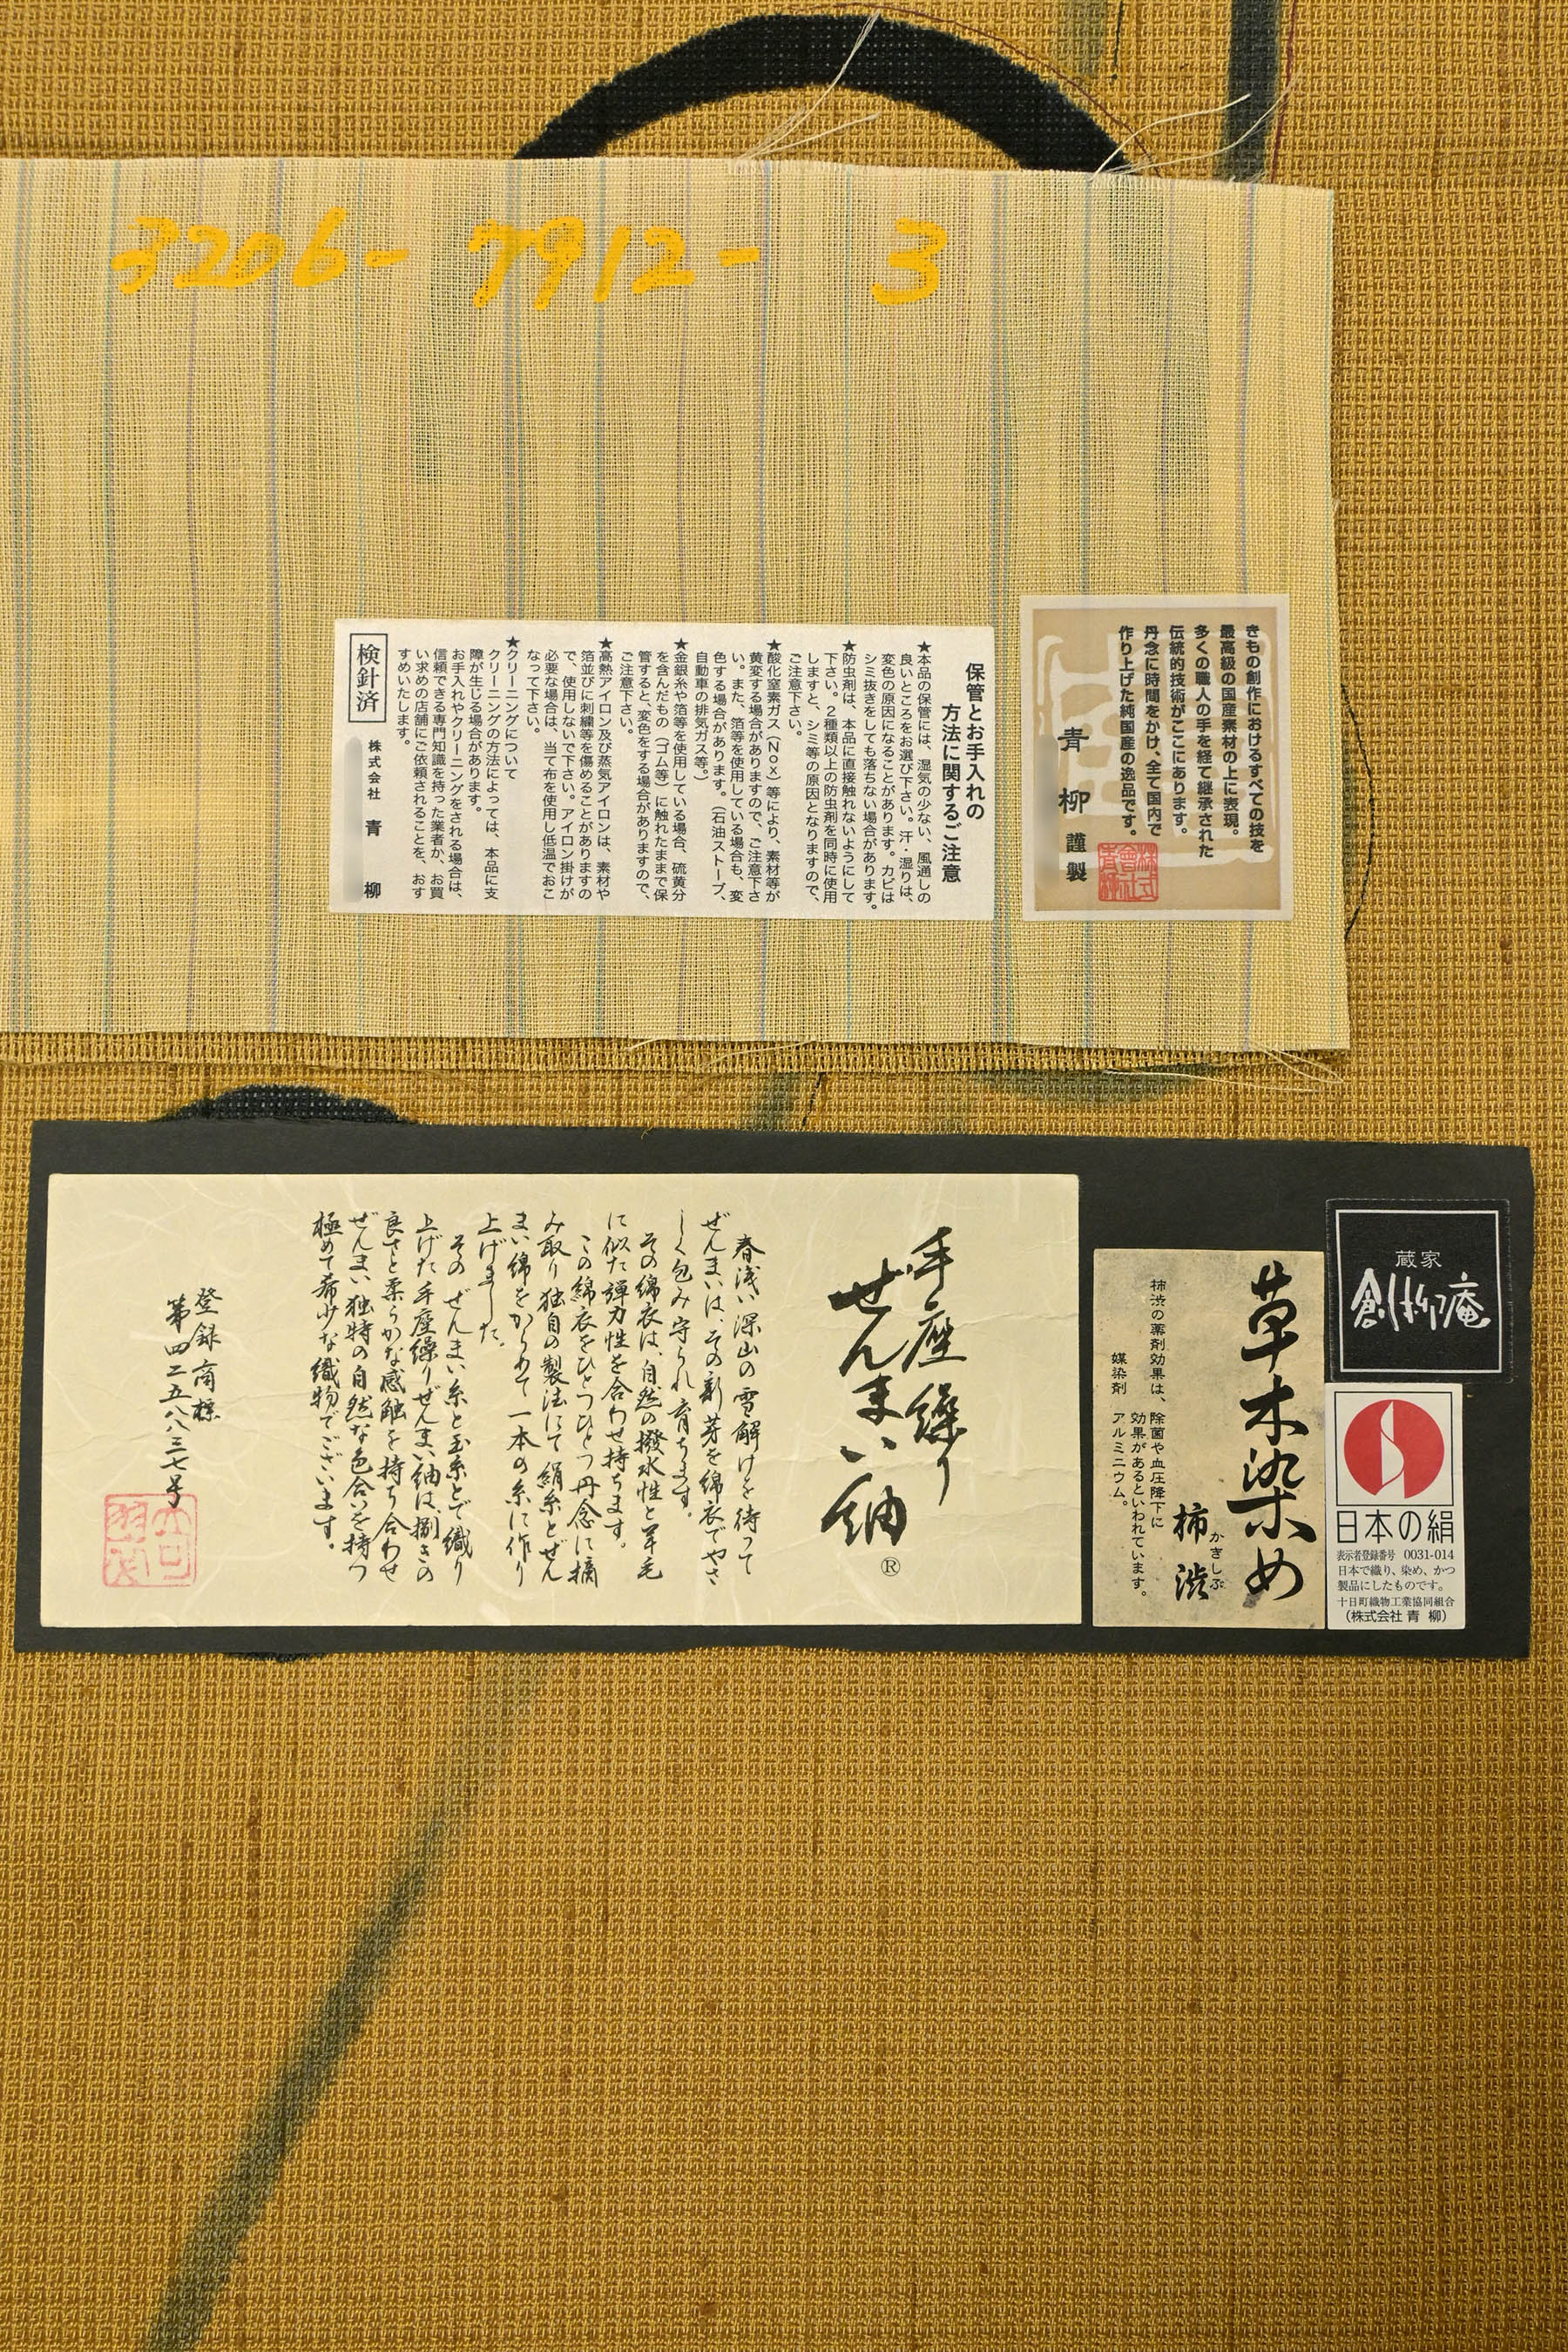 3206-7912-3
きもの創作におけるすべての技を
最高級の国産素材の上に表現。
多くの職人の手を経て継承された
伝統的技術がここにあります。
丹念に時間をかけ、全て国内で
作り上げた純国産の逸品です。
青柳謹製
保管とお手入れの
方法に関するご注意
★本品の保管には、湿気の少ない、風通しの
良いところをお選び下さい。汗・湿りは、
変色の原因になることがあります。カビは
シミ抜きをしても落ちない場合があります。
★防虫剤は、本品に直接触れないようにして
下さい。2種類以上の防虫剤を同時に使用
しますと、シミ等の原因となりますので、
ご注意下さい。
★酸化窒素ガス(Nox)等により、素材等が
黄変する場合がありますので、ご注意下さ
い。また、箔等を使用している場合も、変
色する場合があります。(石油ストーブ、
自動車の排気ガス等。)
★金銀糸や箔等を使用している場合、硫黄分
を含んだもの(ゴム等)に触れたままで保
管すると、変色をする場合がありますので、
ご注意下さい。
★高熱アイロン及び蒸気アイロンは、素材や
箔並びに刺繍等を傷めることがありますの
で、使用しないで下さい。アイロン掛けが
必要な場合は、当て布を使用し低温でおこ
なって下さい。
★クリーニングについて
クリーニングの方法によっては、本品に支
障が生じる場合があります。
お手入れやクリーニングをされる場合は、
信頼できる専門知識を持った業者か、お買
い求めの店舗にご依頼されることを、おす
すめいたします。
検針済
株式会社 青柳
蔵家
日本の絹
表示者登録番号 0031-014
日本で織り、染め、かつ
製品にしたものです。
十日町織物工業協同組合
(株式会社 青柳)
草木染め
かきしぶ
柿渋
柿渋の薬剤効果は、除菌や血圧降下に
効果があるといわれています。
媒染剤 アルミニウム。
手座繰り
ぜんまい紬®
春浅い深山の雪解けを待って
ぜんまいは、その新芽を綿衣でやさ
しく包み守られ育ちます。
その綿衣は、自然の撥水性と羊毛
に似た弾力性を合わせ持ちます。
この綿衣をひとつひとつ丹念に摘
み取り独自の製法にて絹糸とぜん
まい綿をからめて一本の糸に作り
上げました。
その ぜんまい糸と玉糸とで織り
上げた手座繰りぜんまい紬は、捌きの
良さと柔らかな感触を持ち合わせ
ぜんまい独特の自然な色合いを持つ
極めて希少な織物でございます。
登録商標
第四二五八八三七号